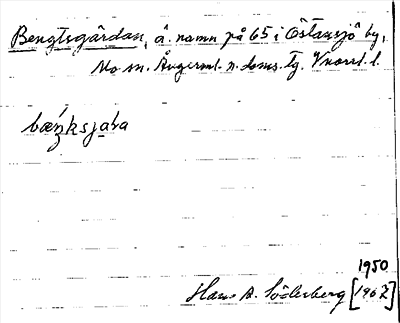 Bengtsgårdan, å. namn på 65 i Östansjö by,
Mo sn. Ångerml. n. doms. tg. Vnorrl. l.
1950
Hans A. Söderberg [1962]